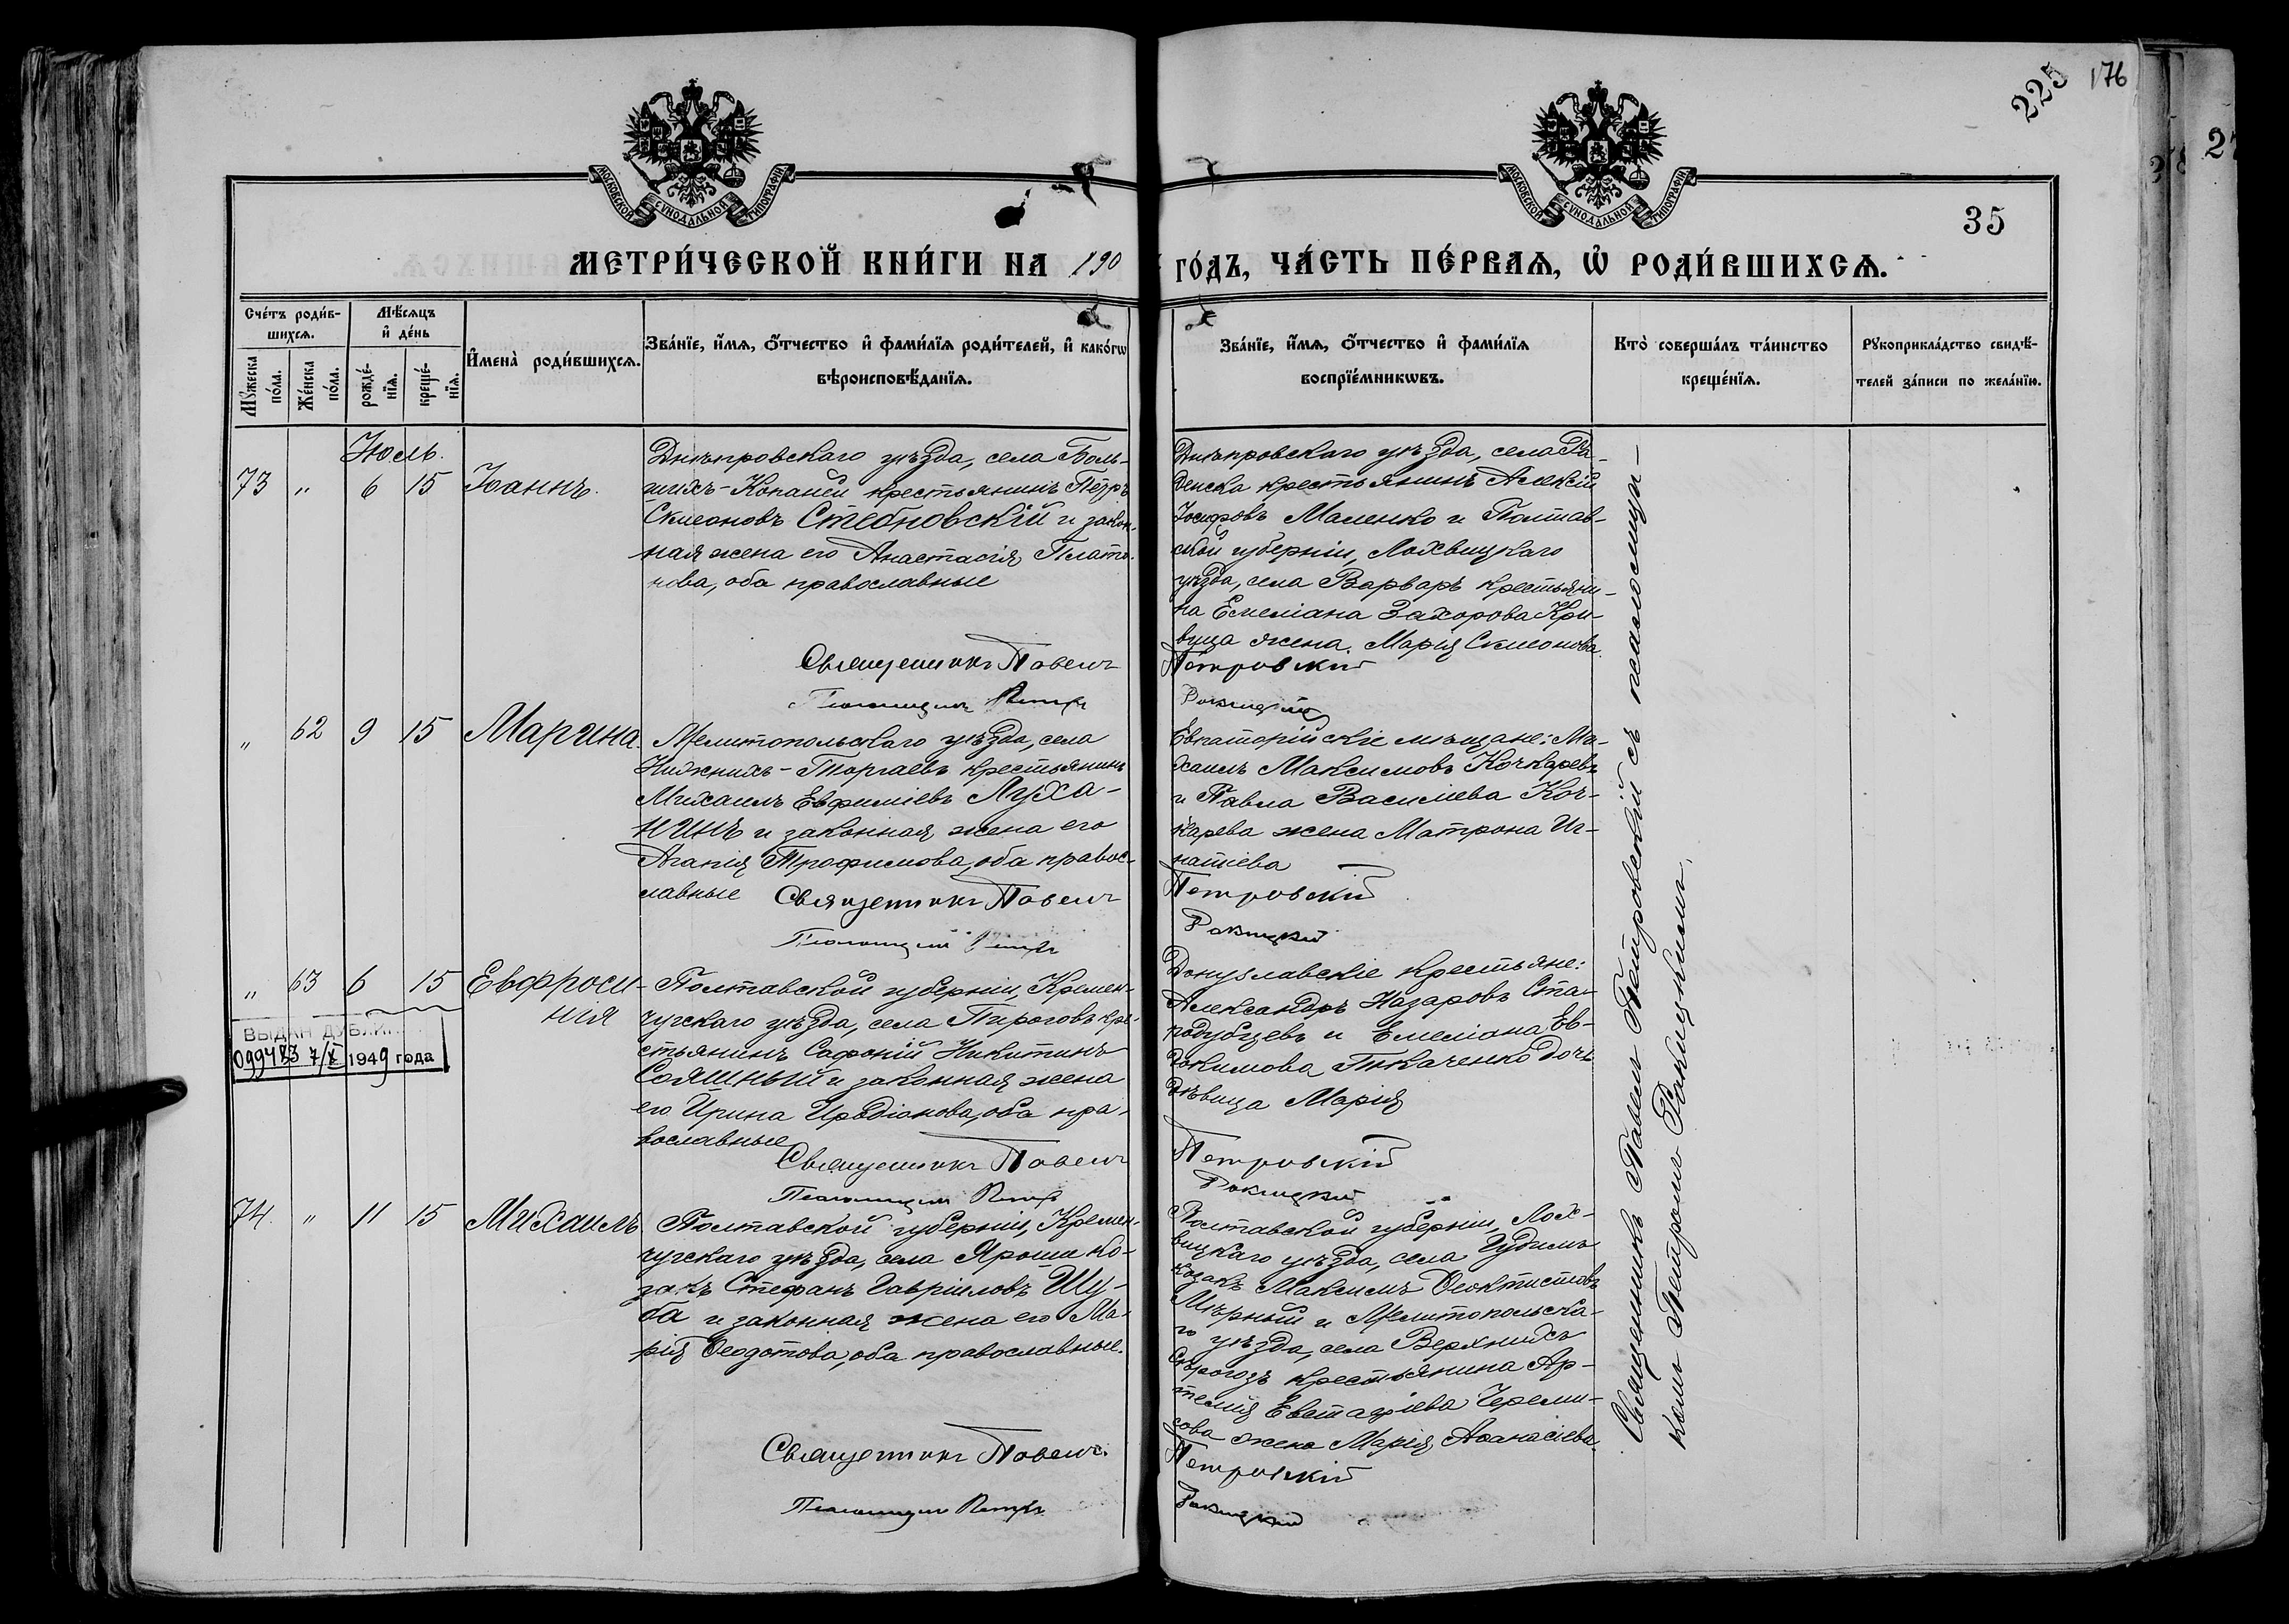 225 176
35
МОСКОВСКОЙ СѴНОДАЛЬНОЙ ТИПОГРАФІИ
МОСКОВСКОЙ СѴНОДАЛЬНОЙ ТИПОГРАФІИ
МЕТРИ́ЧЕСКОЙ КНИ́ГИ НА 190
ГО́ДЪ, ЧА́СТЬ ПЕ́РВАѦ, Ѡ҆ РОДИ́ВШИХСѦ.
Сче́тъ роди́в-
шихсѧ.
Мѣ́сѧцъ
и҆ де́нь
Мꙋ́жеска по́ла.
Же́нска по́ла.
рожде́-
нїѧ.
креще́-
нїѧ.
И҆мена̀ роди́вшихсѧ.
Зва́нїе, и҆́мѧ, ѻ҆́тчество и҆ фами́лїѧ роди́телей, и҆ како́гѡ
вѣроисповѣ́данїѧ.
Зва́нїе, и҆́мѧ, ѻ҆́тчество и҆ фами́лїѧ
воспрїе́мникѡвъ.
Кто̀ соверша́лъ та́инство
креще́нїѧ.
Рꙋкоприкла́дство свидѣ́-
телей за́писи по жела́нїю.
Июль.
73 " 6 15 Іоаннъ.
Днѣпровскаго уѣзда, села Боль-
шихъ-Копаней крестьянинъ Петръ
Симеоновъ Стебновскій и закон-
ная жена его Анастасія Плато-
нова, оба православные
Священникъ Павелъ
Псаломщикъ Петръ
Днѣпровскаго уѣзда, села Ра-
денска крестьянинъ Алексій
Іосифовъ Маленко и Полтав-
ской губерніи, Лохвицкаго
уѣзда, села Варваръ крестьяни-
на Емеліана Захорова Кри-
вуца жена Марія Симеонова.
Петровскій
Рокицкій
" 62 9 15 Марина
Мелитопольскаго уѣзда, села
Нижнихъ-Торгаевъ крестьянинъ
Михаилъ Евфиміевъ Луха-
нинъ и законная жена его
Агапія Трофимова, оба правос-
лавные Священникъ Павелъ
Псаломщикъ Петръ
Евпаторійскіе мѣщане: Ми-
хаилъ Максимовъ Кочкаревъ
и Павла Василіева Коч-
карева жена Матрона Иг-
натіева
Петровскій
Рокицкій
" 63 6 15 Евфроси-
нія
ВЫДАН ДУБЛИ
099483 7/X 1949 года
Полтавской губерніи, Кремен-
чугскаго уѣзда, села Пироговъ кре-
стьянинъ Софоній Никитинъ
Сояшный и законная жена
его Ирина Иродіонова, оба пра-
вославные
Священникъ Павелъ
Псаломщикъ Петръ
Донузлавскіе крестьяне:
Александръ Назаровъ Ста-
родубцевъ и Емеліана Ев-
докимова Ткаченко дочь
дѣвица Марія
Петровскій
Рокицкій
74. " 11 15 Михаилъ
Полтавской губерніи, Кремен-
чугскаго уѣзда, села Яроши ко-
закъ Стефанъ Гавріиловъ Шу-
ба и законная жена его Ма-
рія Ѳеодотова, оба православные.
Священникъ Павелъ.
Псаломщикъ Петръ
Полтавской губерніи, Лох-
вицкаго уѣзда, села Гудимъ
козакъ Максимъ Ѳеоктистовъ
Мѣрный и Мелитопольска-
го уѣзда, села Верхнихъ
Сѣрогозъ крестьянина Ар-
темія Евстафіева Череми-
сова жена Марія Аѳанасіева.
Петровскій
Рокицкій
Священникъ Павелъ Петровскій съ псаломщи-
комъ Петромъ Рокицкимъ.